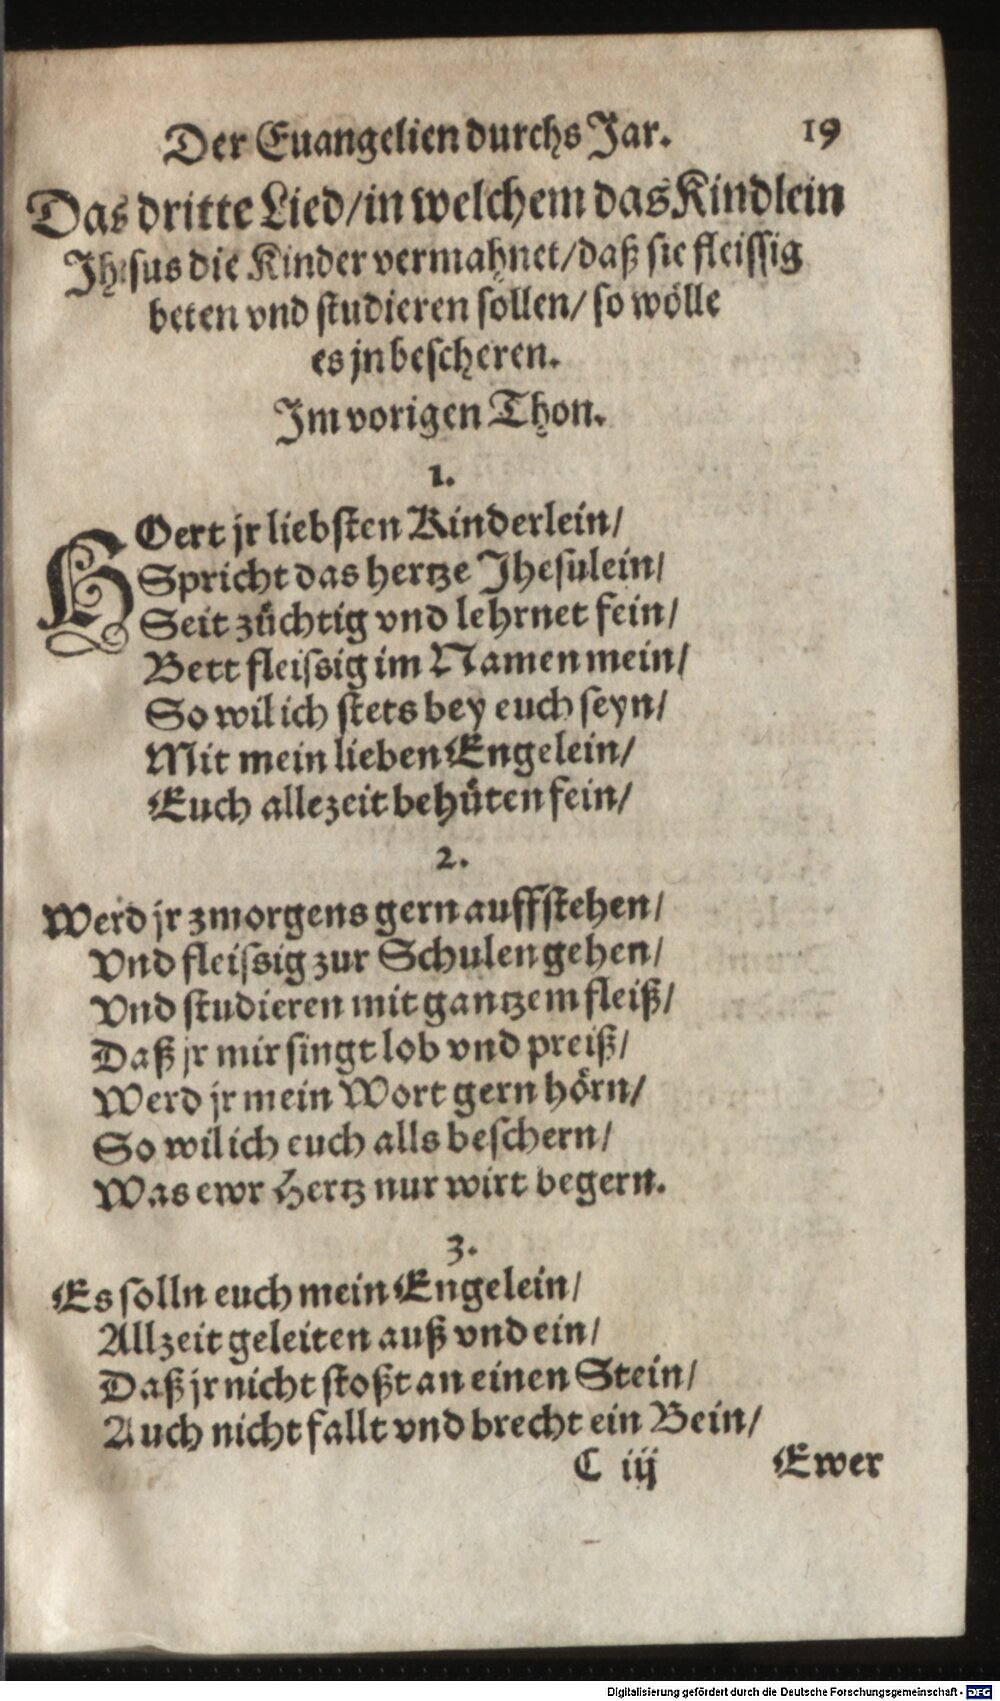 Der Euangelien durchs Jar. 19
Das dritte Lied/in welchem das Kindlein
Jhesus die Kinder vermahnet/daß sie fleissig
beten vnd studieren sollen/ so wölle
es jn bescheren.
Im vorigen Thon.
1.
HOert jr liebsten Kinderlein/
Spricht das hertze Jhesulein/
Seit züchtig vnd lehrnet fein/
Bett fleissig im Namen mein/
So wil ich stets bey euch seyn/
Mit mein lieben Engelein/
Euch allezeit behüten fein/
2.
Werd jr zmorgens gern auffstehen/
Vnd fleissig zur Schulen gehen/
Vnd studieren mit gantzem fleiß/
Daß jr mir singt lob vnd preiß/
Werd jr mein Wort gern hörn/
So wil ich euch alls beschern/
Was ewr Hertz nur wirt begern.
3.
Es solln euch mein Engelein/
Allzeit geleiten auß vnd ein/
Daß jr nicht stoßt an einen Stein/
Auch nicht fallt vnd brecht ein Bein/
C iij Ewer
Digitalisierung gefördert durch die Deutsche Forschungsgemeinschaft - DFG